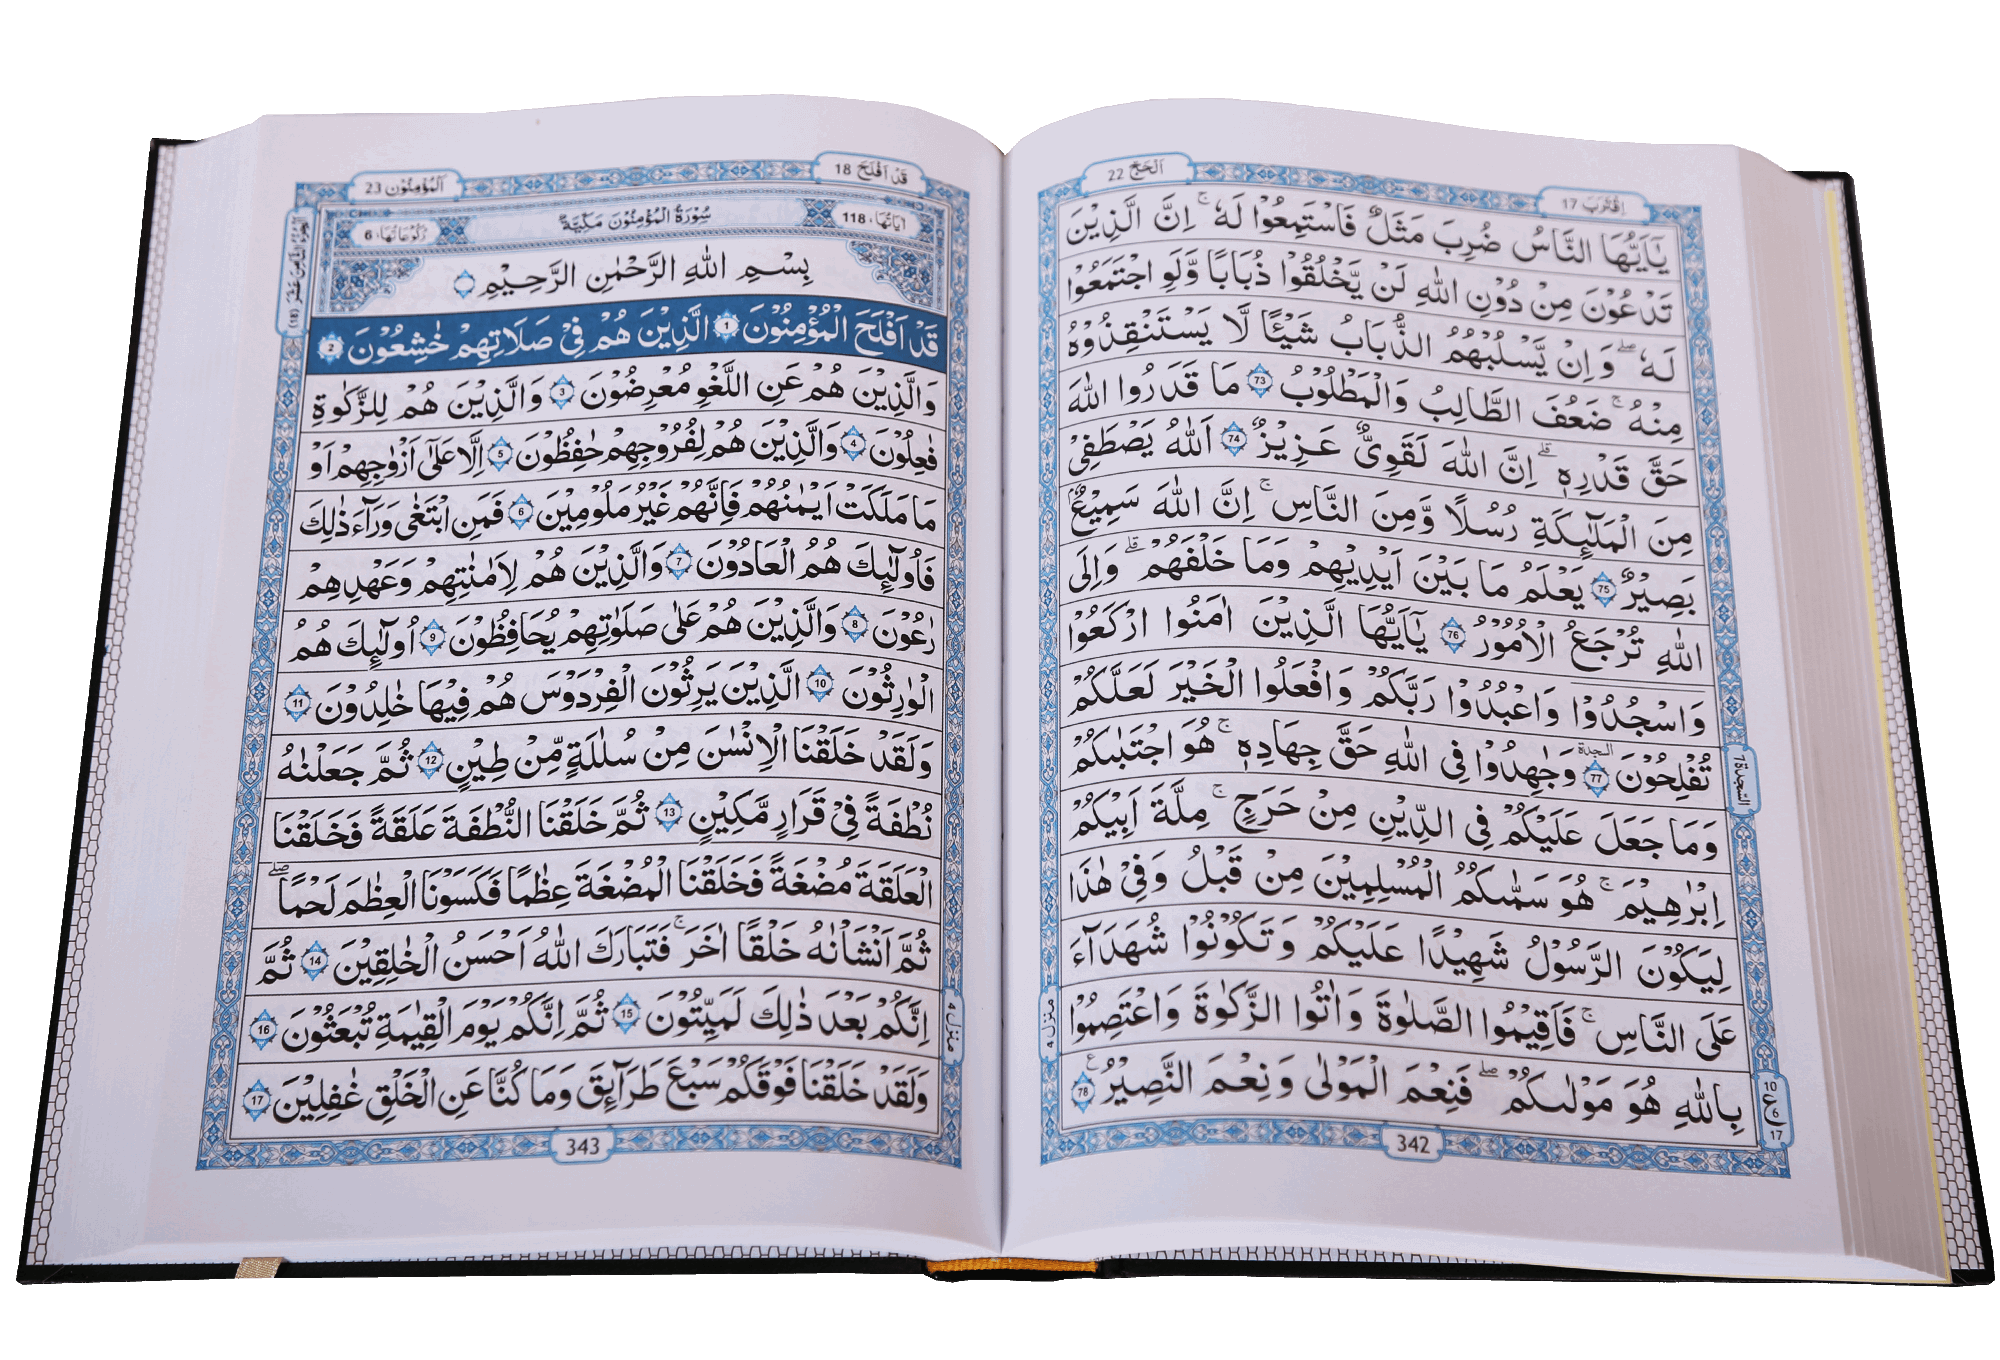 اَلْحَجّ 22
اِقْتَرَبَ 17
يٰۤاَيُّهَا النَّاسُ ضُرِبَ مَثَلٌ فَاسْتَمِعُوْا لَهٗ ۚ اِنَّ الَّذِيْنَ
تَدْعُوْنَ مِنْ دُوْنِ اللّٰهِ لَنْ يَّخْلُقُوْا ذُبَابًا وَّلَوِ اجْتَمَعُوْا
لَهٗ ۖ وَاِنْ يَّسْلُبْهُمُ الذُّبَابُ شَيْـًٔا لَّا يَسْتَنْقِذُوْهُ
مِنْهُ ۚ ضَعُفَ الطَّالِبُ وَالْمَطْلُوْبُ 73 مَا قَدَرُوا اللّٰهَ
حَقَّ قَدْرِهٖ ۗ اِنَّ اللّٰهَ لَقَوِيٌّ عَزِيْزٌ 74 اَللّٰهُ يَصْطَفِيْ
مِنَ الْمَلٰٓئِكَةِ رُسُلًا وَّمِنَ النَّاسِ ۚ اِنَّ اللّٰهَ سَمِيْعٌۢ
بَصِيْرٌ 75 يَعْلَمُ مَا بَيْنَ اَيْدِيْهِمْ وَمَا خَلْفَهُمْ ۗ وَاِلَى
اللّٰهِ تُرْجَعُ الْاُمُوْرُ 76 يٰۤاَيُّهَا الَّذِيْنَ اٰمَنُوا ارْكَعُوْا
وَاسْجُدُوْا وَاعْبُدُوْا رَبَّكُمْ وَافْعَلُوا الْخَيْرَ لَعَلَّكُمْ
تُفْلِحُوْنَ السجدة 77 وَجٰهِدُوْا فِي اللّٰهِ حَقَّ جِهَادِهٖ ۚ هُوَ اجْتَبٰىكُمْ
السّجدة 7
وَمَا جَعَلَ عَلَيْكُمْ فِي الدِّيْنِ مِنْ حَرَجٍ ۚ مِلَّةَ اَبِيْكُمْ
اِبْرٰهِيْمَ ۚ هُوَ سَمّٰىكُمُ الْمُسْلِمِيْنَ مِنْ قَبْلُ وَفِيْ هٰذَا
لِيَكُوْنَ الرَّسُوْلُ شَهِيْدًا عَلَيْكُمْ وَتَكُوْنُوْا شُهَدَآءَ
عَلَى النَّاسِ ۚ فَاَقِيْمُوا الصَّلٰوةَ وَاٰتُوا الزَّكٰوةَ وَاعْتَصِمُوْا
منزل 4
بِاللّٰهِ هُوَ مَوْلٰىكُمْ ۖ فَنِعْمَ الْمَوْلٰى وَنِعْمَ النَّصِيْرُ ع 78
10
ع 6
17
342
قَدْ اَفْلَحَ 18
اَلْمُؤْمِنُوْن 23
اٰيَاتُهَا، 118
سُوْرَةُ الْمُؤْمِنُوْنَ مَكِّيَّةٌ
رُكُوْعَاتُهَا، 6
الجزء الثامن عشر (18)
بِسْمِ اللّٰهِ الرَّحْمٰنِ الرَّحِيْمِ
قَدْ اَفْلَحَ الْمُؤْمِنُوْنَ 1 الَّذِيْنَ هُمْ فِيْ صَلَاتِهِمْ خٰشِعُوْنَ 2
وَالَّذِيْنَ هُمْ عَنِ اللَّغْوِ مُعْرِضُوْنَ 3 وَالَّذِيْنَ هُمْ لِلزَّكٰوةِ
فٰعِلُوْنَ 4 وَالَّذِيْنَ هُمْ لِفُرُوْجِهِمْ حٰفِظُوْنَ 5 اِلَّا عَلٰٓى اَزْوٰجِهِمْ اَوْ
مَا مَلَكَتْ اَيْمٰنُهُمْ فَاِنَّهُمْ غَيْرُ مَلُوْمِيْنَ 6 فَمَنِ ابْتَغٰى وَرَآءَ ذٰلِكَ
فَاُولٰٓئِكَ هُمُ الْعَادُوْنَ 7 وَالَّذِيْنَ هُمْ لِاَمٰنٰتِهِمْ وَعَهْدِهِمْ
رٰعُوْنَ 8 وَالَّذِيْنَ هُمْ عَلٰى صَلَوٰتِهِمْ يُحَافِظُوْنَ 9 اُولٰٓئِكَ هُمُ
الْوٰرِثُوْنَ 10 الَّذِيْنَ يَرِثُوْنَ الْفِرْدَوْسَ هُمْ فِيْهَا خٰلِدُوْنَ 11
وَلَقَدْ خَلَقْنَا الْاِنْسٰنَ مِنْ سُلٰلَةٍ مِّنْ طِيْنٍ 12 ثُمَّ جَعَلْنٰهُ
نُطْفَةً فِيْ قَرَارٍ مَّكِيْنٍ 13 ثُمَّ خَلَقْنَا النُّطْفَةَ عَلَقَةً فَخَلَقْنَا
الْعَلَقَةَ مُضْغَةً فَخَلَقْنَا الْمُضْغَةَ عِظٰمًا فَكَسَوْنَا الْعِظٰمَ لَحْمًا ۖ
ثُمَّ اَنْشَاْنٰهُ خَلْقًا اٰخَرَ ۚ فَتَبَارَكَ اللّٰهُ اَحْسَنُ الْخٰلِقِيْنَ 14 ثُمَّ
اِنَّكُمْ بَعْدَ ذٰلِكَ لَمَيِّتُوْنَ 15 ثُمَّ اِنَّكُمْ يَوْمَ الْقِيٰمَةِ تُبْعَثُوْنَ 16
منزل 4
وَلَقَدْ خَلَقْنَا فَوْقَكُمْ سَبْعَ طَرَآئِقَ وَمَا كُنَّا عَنِ الْخَلْقِ غٰفِلِيْنَ 17
343